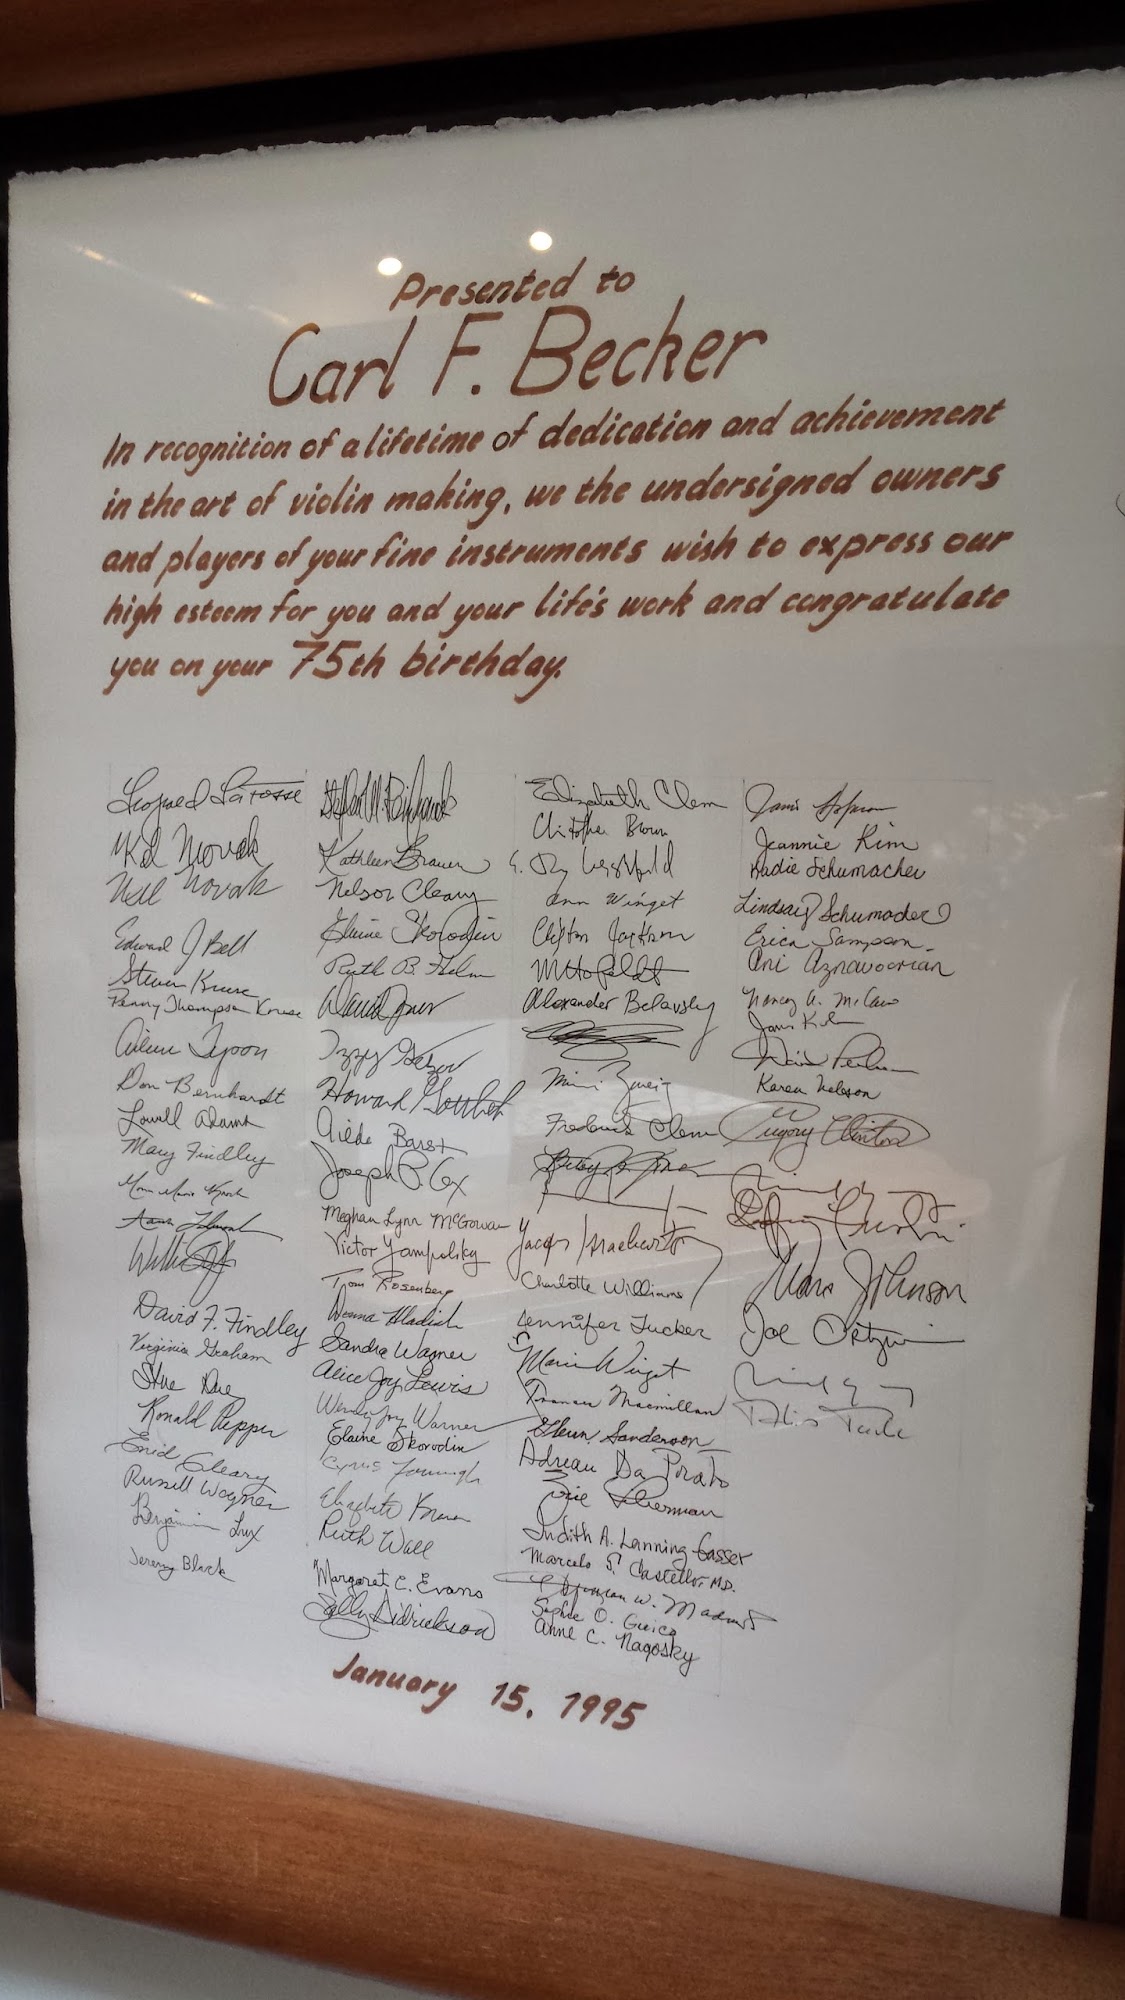 Presented to
Carl F. Becker
In recognition of a lifetime of dedication and achievement
in the art of violin making, we the undersigned owners
and players of your fine instruments wish to express our
high esteem for you and your life's work and congratulate
you on your 75th birthday.
Novak
Nell Novak
Edward J Bell
Steven Kruse
Penny Thompson Kruse
Aileen Tyson
Don Bernhardt
Lowell Adams
Mary Findley
David F. Findley
Virginia Graham
Ronald Pepper
Enid Cleary
Russell Wagner
Benjamin Lux
Jeremy Black
Kathleen Brauer
Nelson Cleary
Elaine Skorodin
Ruth B. Helm
Izzy
Howard Gottlieb
Gilda Barst
Joseph P. Cox
Meghan Lynn McGowan
Victor Yampolsky
Tom Rosenberg
Sandra Wagner
Alice Joy Lewis
Wendy Joy Warner
Elaine Skorodin
Cyrus Forough
Elizabeth
Ruth Wall
Margaret C. Evans
Sally Didrickson
Elizabeth Clem
Christopher Brown
Ann Winget
Clifton Jackson
Alexander Belavsky
Mimi Zweig
Frederick Clem
Charlotte Williams
Jennifer Tucker
Marie Winget
Frances Macmillan
Glenn Sanderson
Adrian Da Prato
Judith A. Lanning Gasser
Marcelo S. Castello, M.D.
Sophie O.
Anne C. Nagosky
Jeannie Kim
Kadie Schumacher
Lindsay Schumacher
Erica Sampson
Ani Aznavoorian
Nancy A. McCaw
Karen Nelson
Mark Johnson
Joe
January 15, 1995